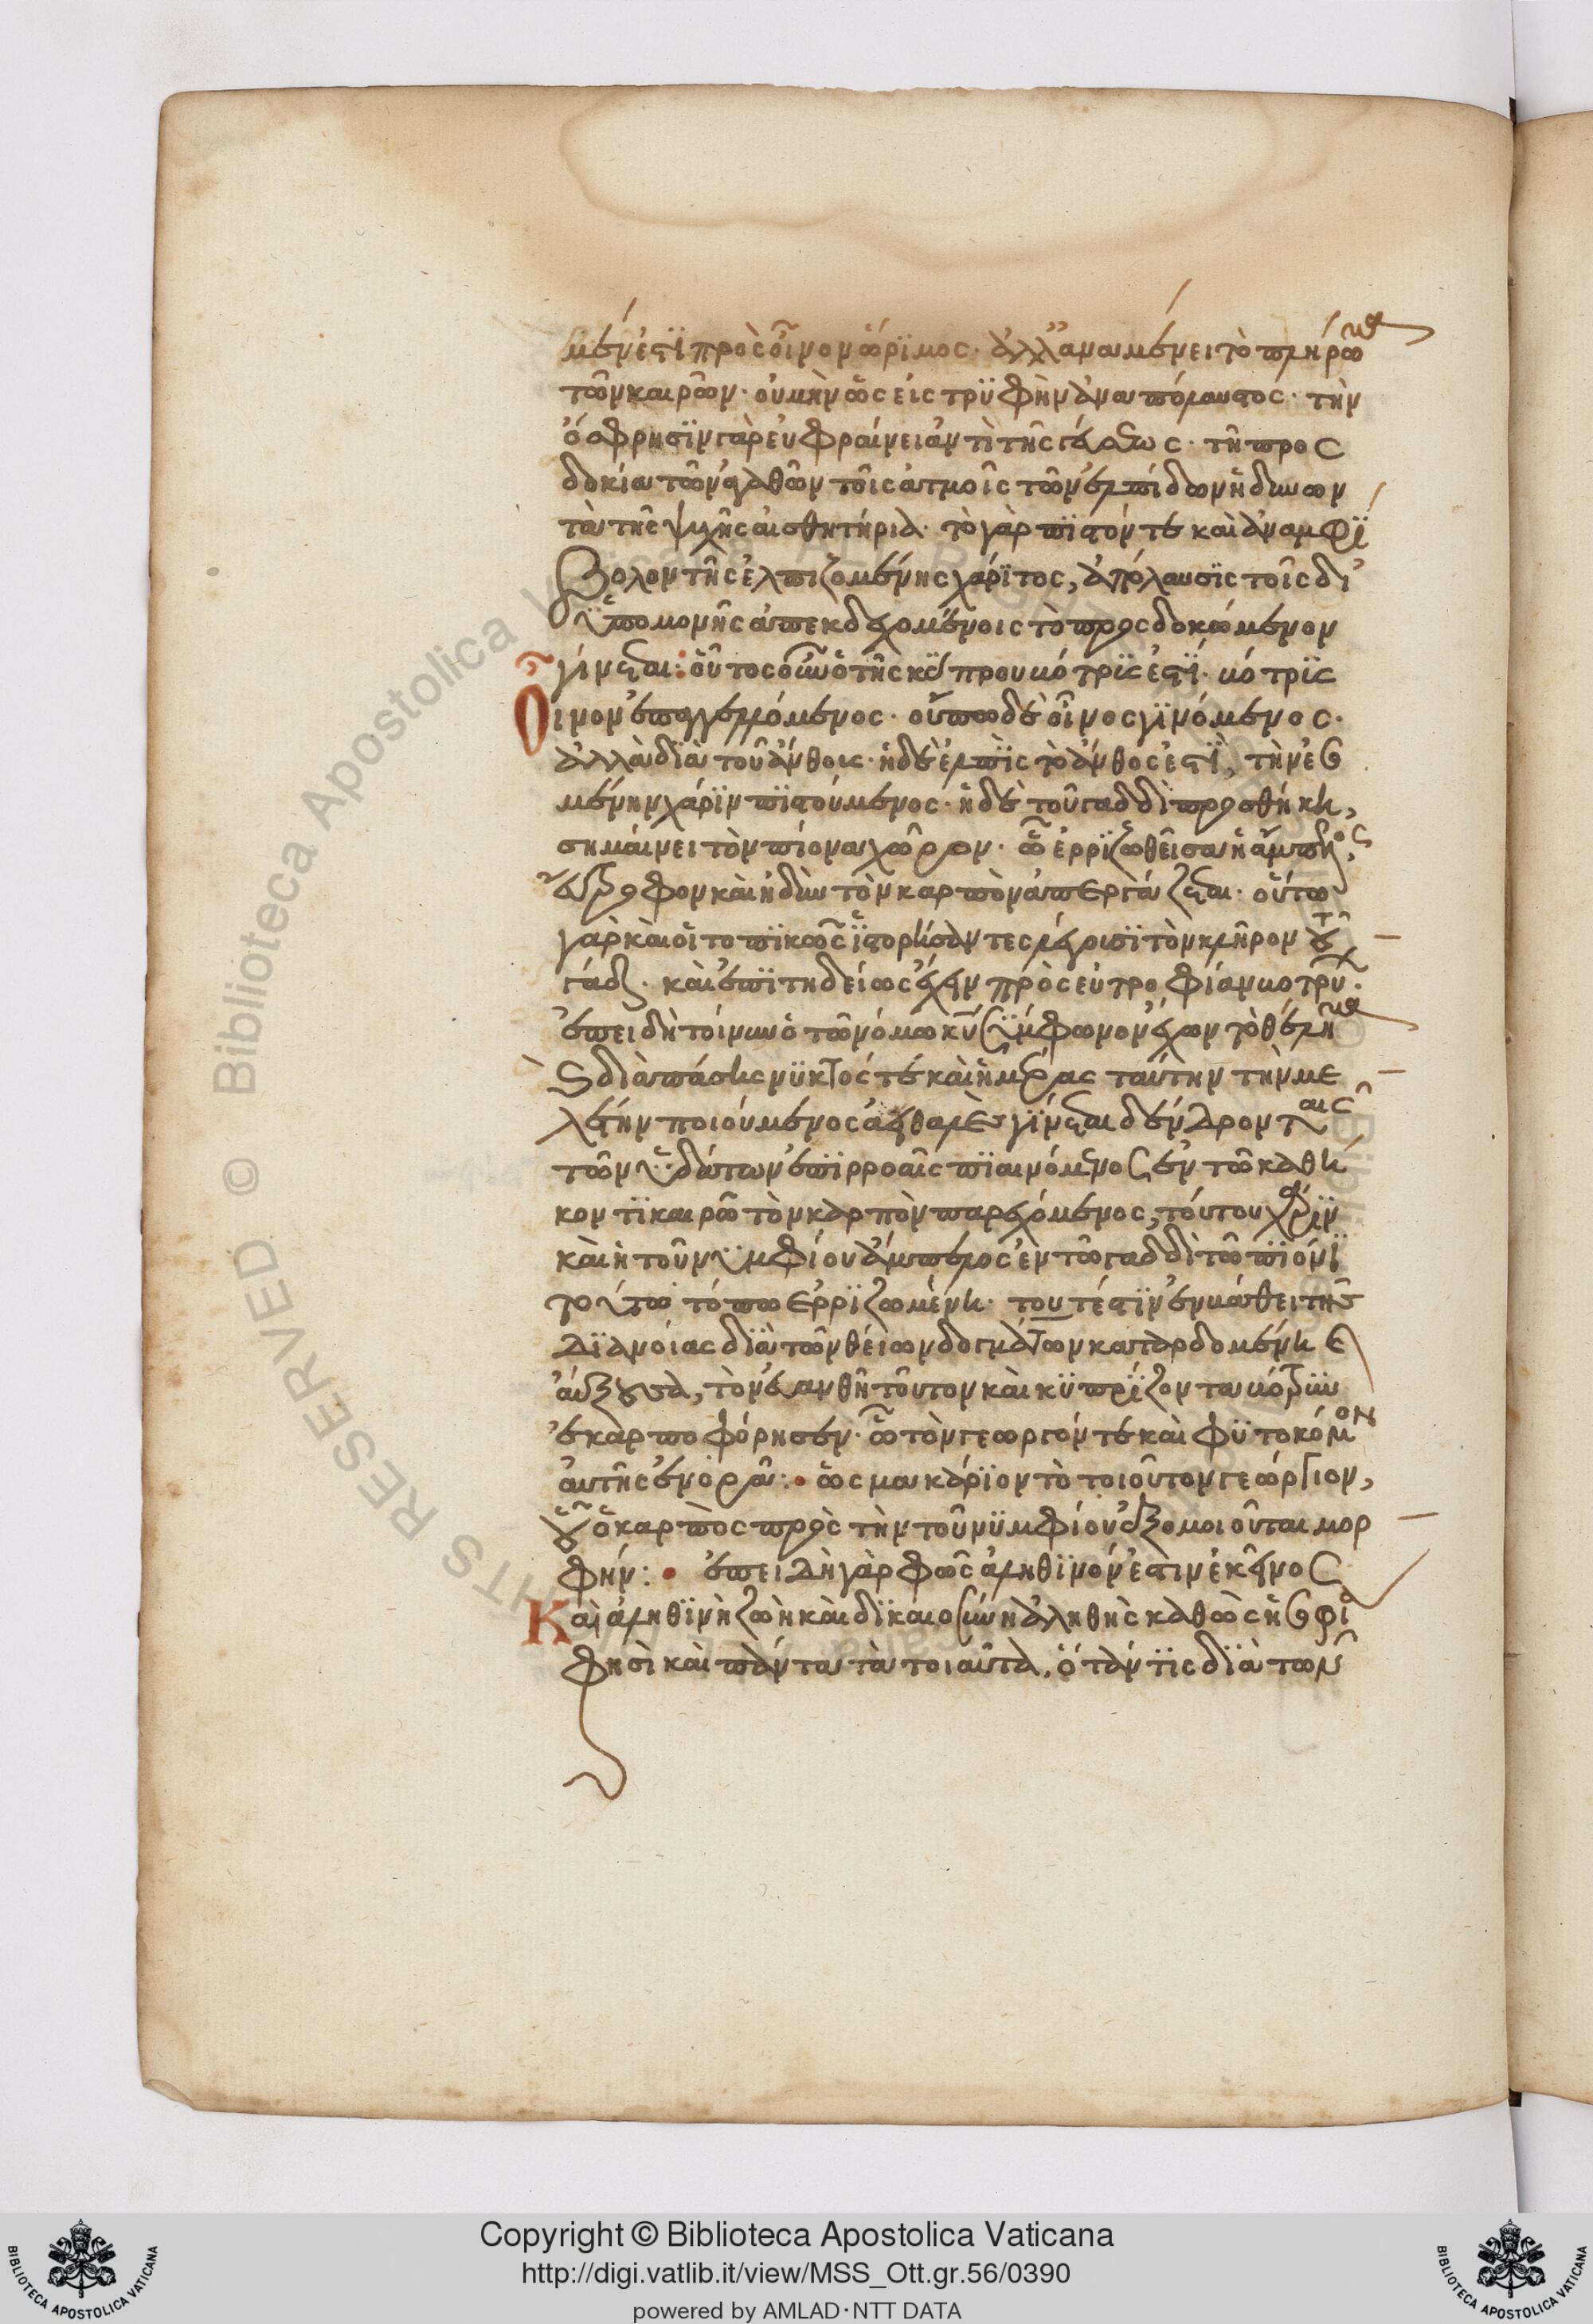 μέν ἐστι πρὸς οἶνον ὥριμος· ἀλλ' ἀναμένει τὸ πλήρωμα
τῶν καιρῶν· οὐ μὴν ὡς εἰς τρυφὴν ἀναπόλαυστος· τὴν
ὄσφρησιν γὰρ εὐφραίνει ἀντὶ τῆς γεύσεως· τῇ προσ
δοκία τῶν ἀγαθῶν τοῖς ἀτμοῖς τῶν ἐλπίδων ἡδύνων
τὰ τῆς ψυχῆς αἰσθητήρια· τὸ γὰρ πιστόν τε καὶ ἀναμφί
βολον τῆς ἐλπιζομένης χάριτος, ἀπόλαυσις τοῖς δι'
ὑπομονῆς ἀπεκδεχομένοις τὸ προσδοκώμενον
γίνεται: οὗτος οὖν ὁ τῆς κύπρου βότρις ἐστί· βότρις
οἶνον ἐπαγγελλόμενος· οὔπω δὲ οἶνος γινόμενος·
ἀλλὰ διὰ τοῦ ἄνθους· ἡ δὲ ἐλπὶς τὸ ἄνθος ἐστί, τὴν ἐσο
μένην χάριν πιστούμενος· ἡ δὲ τοῦ γαδδὶ προσθήκη,
σημαίνει τὸν πίονα χῶρον· ᾧ ἐρριζωθεῖσα ἡ ἄμπελος,
εὔτροφον καὶ ἡδὺν τὸν καρπὸν ἀπεργάζεται· οὕτω
γὰρ καὶ οἱ τοπικῶς ἱστορήσαντες λέγουσι τὸν κλῆρον τοῦ
γαδδὶ· καὶ ἐπιτηδείως ἔχειν πρὸς εὐτροφίαν βοτρύων·
ἐπειδὴ τοίνυν ὁ τῷ νόμω κυρίου σύμφωνον ἔχων τὸ θέλημα
καὶ διὰ πάσης νυκτός τε καὶ ἡμέρας ταύτην τὴν με
λέτην ποιούμενος ἀειθαλὲς γίνεται δένδρον ταῖς
τῶν ὑδάτων ἐπιρροαῖς πιαινόμενος ἐν τῷ καθή
κοντι καιρῷ τὸν καρπὸν παρεχόμενος, τούτου χάριν
καὶ ἡ τοῦ νυμφίου ἄμπελος ἐν τῷ γαδδὶ τῷ πίονι
τούτω τόπω ἐρριζωμένη· τουτέστιν ἐν βάθει τῆς
διανοίας διὰ τῶν θείων δογμάτων καταρδομένη καὶ
αὔξουσα, τὸν εὐανθῆ τοῦτον καὶ κυπρίζοντα βότρυν
ἐκαρποφόρησεν· ᾧ τὸν γεωργόν τε καὶ φυτοκόμον
αὐτῆς ἐνορᾶ: ὡς μακάριον τὸ τοιοῦτον γεώργιον,
οὗ ὁ καρπὸς πρὸς τὴν τοῦ νυμφίου ἐξομοιοῦται μορ
φήν: ἐπειδὴ γὰρ φῶς ἀληθινόν ἐστιν ἐκεῖνος
καὶ ἀληθινὴ ζωὴ καὶ δικαιοσύνη ἀληθὴς καθὼς ἡ σοφία
φησὶ καὶ πάντα τὰ τοιαῦτα, ὅταν τὶς διὰ τῶν
Copyright © Biblioteca Apostolica Vaticana
http://digi.vatlib.it/view/MSS_Ott.gr.56/0390
powered by AMLAD·NTT DATA